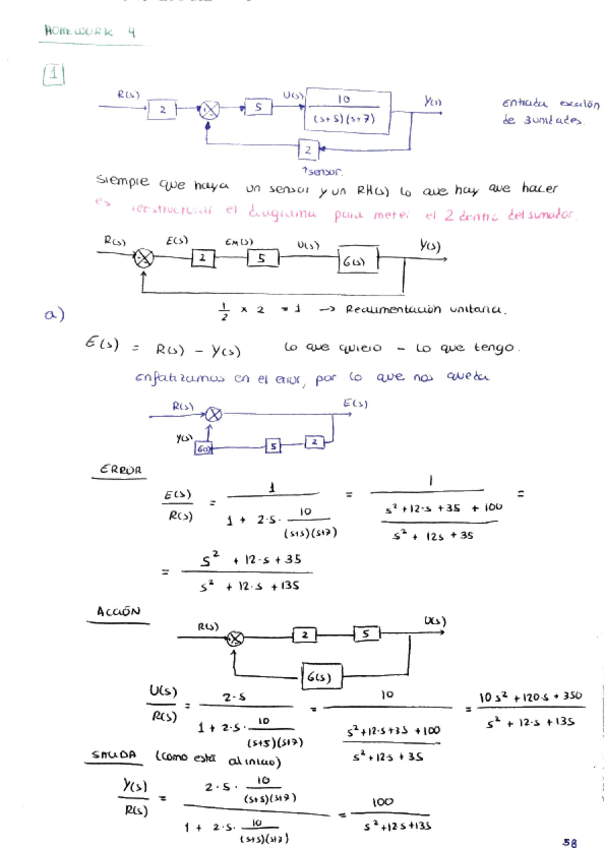 HOMEWORK 4
1
R(s) 2 5 U(s) 10 / (s+5)(s+7) Y(s)
Entrada escalón
de 3 unidades.
2
↑sensor.
Siempre que haya un sensor y un RH(s) lo que hay que hacer
es reestructurar el diagrama para meter el 2 dentro del sumador.
R(s) E(s) 2 EM(s) 5 U(s) G(s) Y(s)
1/2 x 2 = 1 → Realimentación unitaria.
a)
E(s) = R(s) - Y(s) lo que quiero - lo que tengo.
Enfatizamos en el error, por lo que nos queda
R(s) E(s)
Y(s) G(s) 5 2
ERROR
E(s)/R(s) = 1 / (1 + 2·5· 10/((s+5)(s+7))) = 1 / ((s²+12·s+35+100)/(s²+12s+35)) =
= (s²+12·s+35) / (s²+12·s+135)
ACCIÓN
R(s) 2 5 U(s)
G(s)
U(s)/R(s) = 2·5 / (1 + 2·5· 10/((s+5)(s+7))) = 10 / ((s²+12·s+35+100)/(s²+12·s+35)) = (10s²+120·s+350) / (s²+12·s+135)
SALIDA (como está al inicio)
Y(s)/R(s) = (2·5· 10/((s+5)(s+7))) / (1 + 2·5· 10/((s+5)(s+7))) = 100 / (s²+12s+135)
58